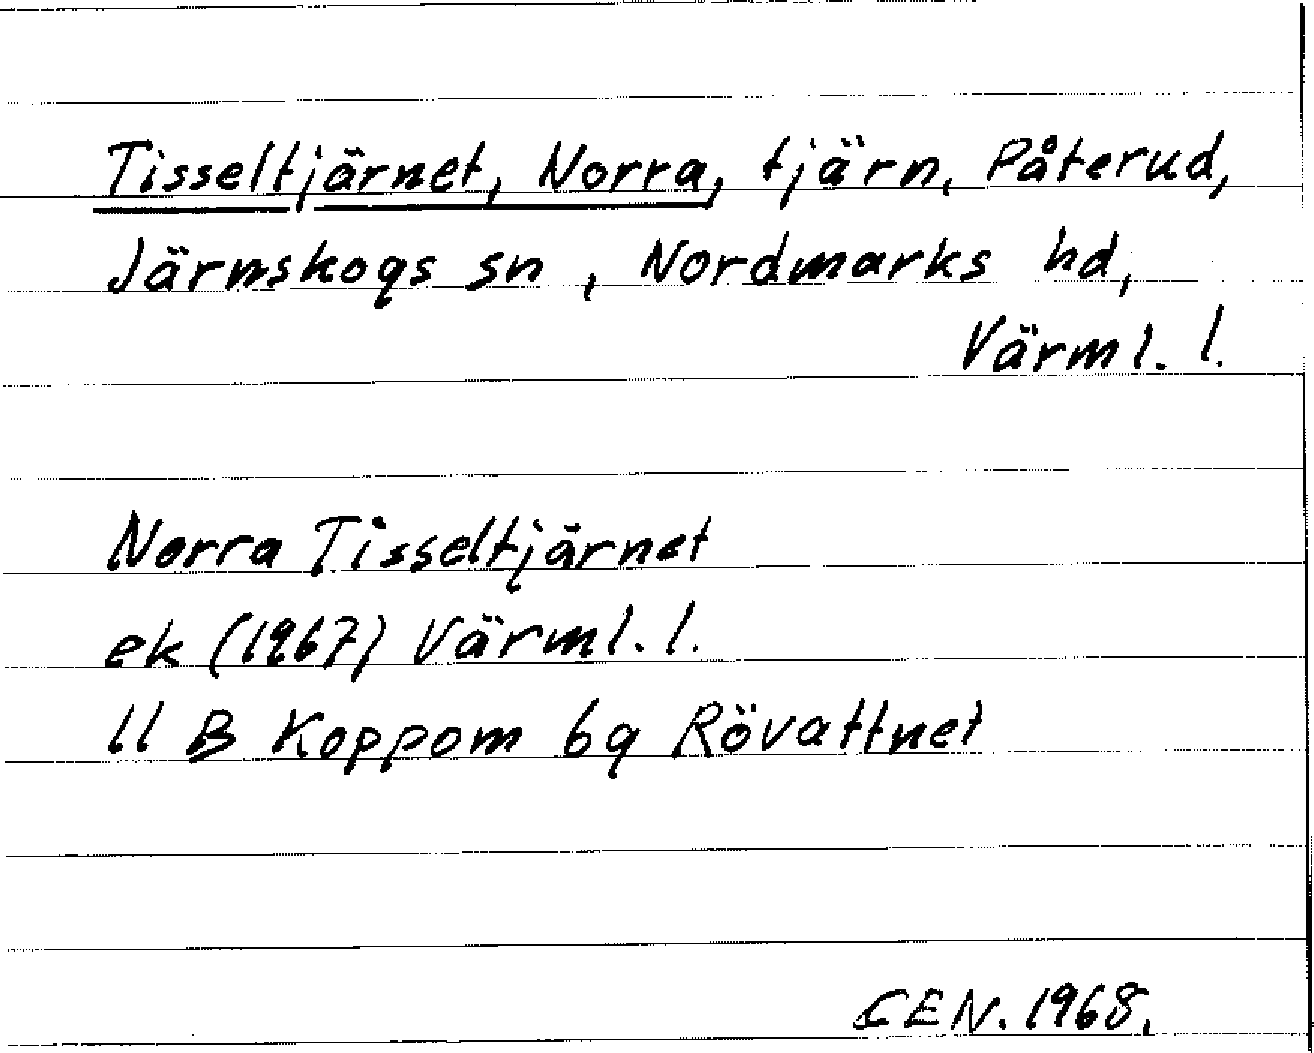 Tisseltjärnet, Norra, tjärn, Påterud,
Järnskogs sn, Nordmarks hd,
Värml. l.
Norra Tisseltjärnet
ek (1967) Värml. l.
11 B Koppom 6g Rövattnet
CEN. 1968.